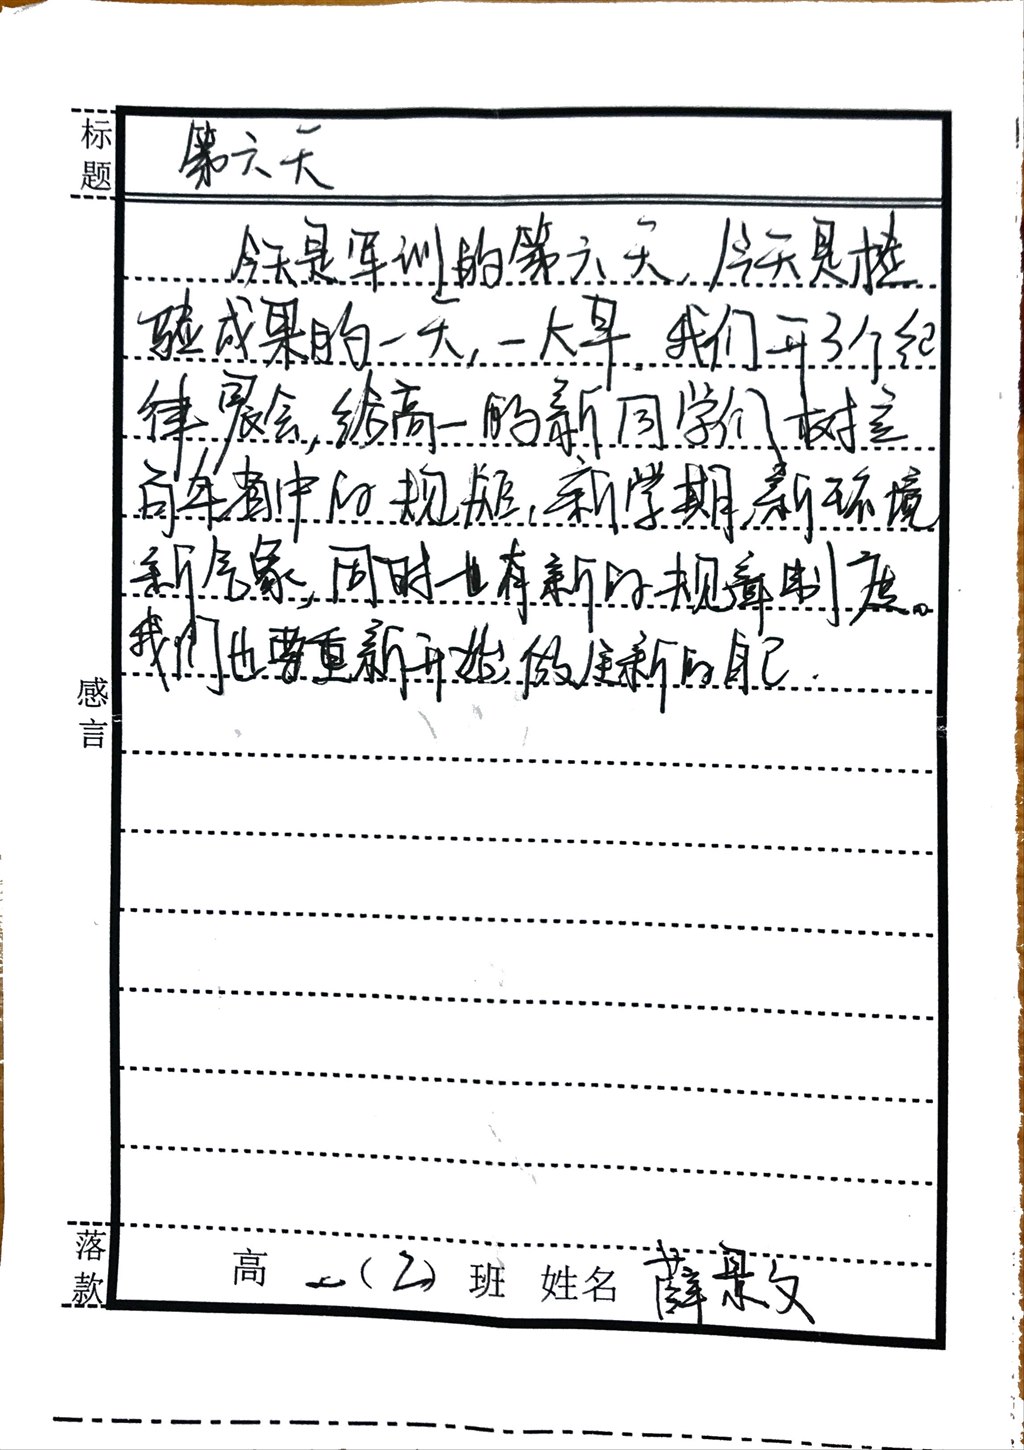 标题
第六天
今天是军训的第六天，今天是检
验成果的一天，一大早，我们开了个纪
律晨会，给高一的新同学们树立
百年育中的规矩，新学期，新环境
新气象，同时也有新的规章制度。
我们也要重新开始，做全新的自己.
感言
落款
高一（2）班 姓名 薛景文